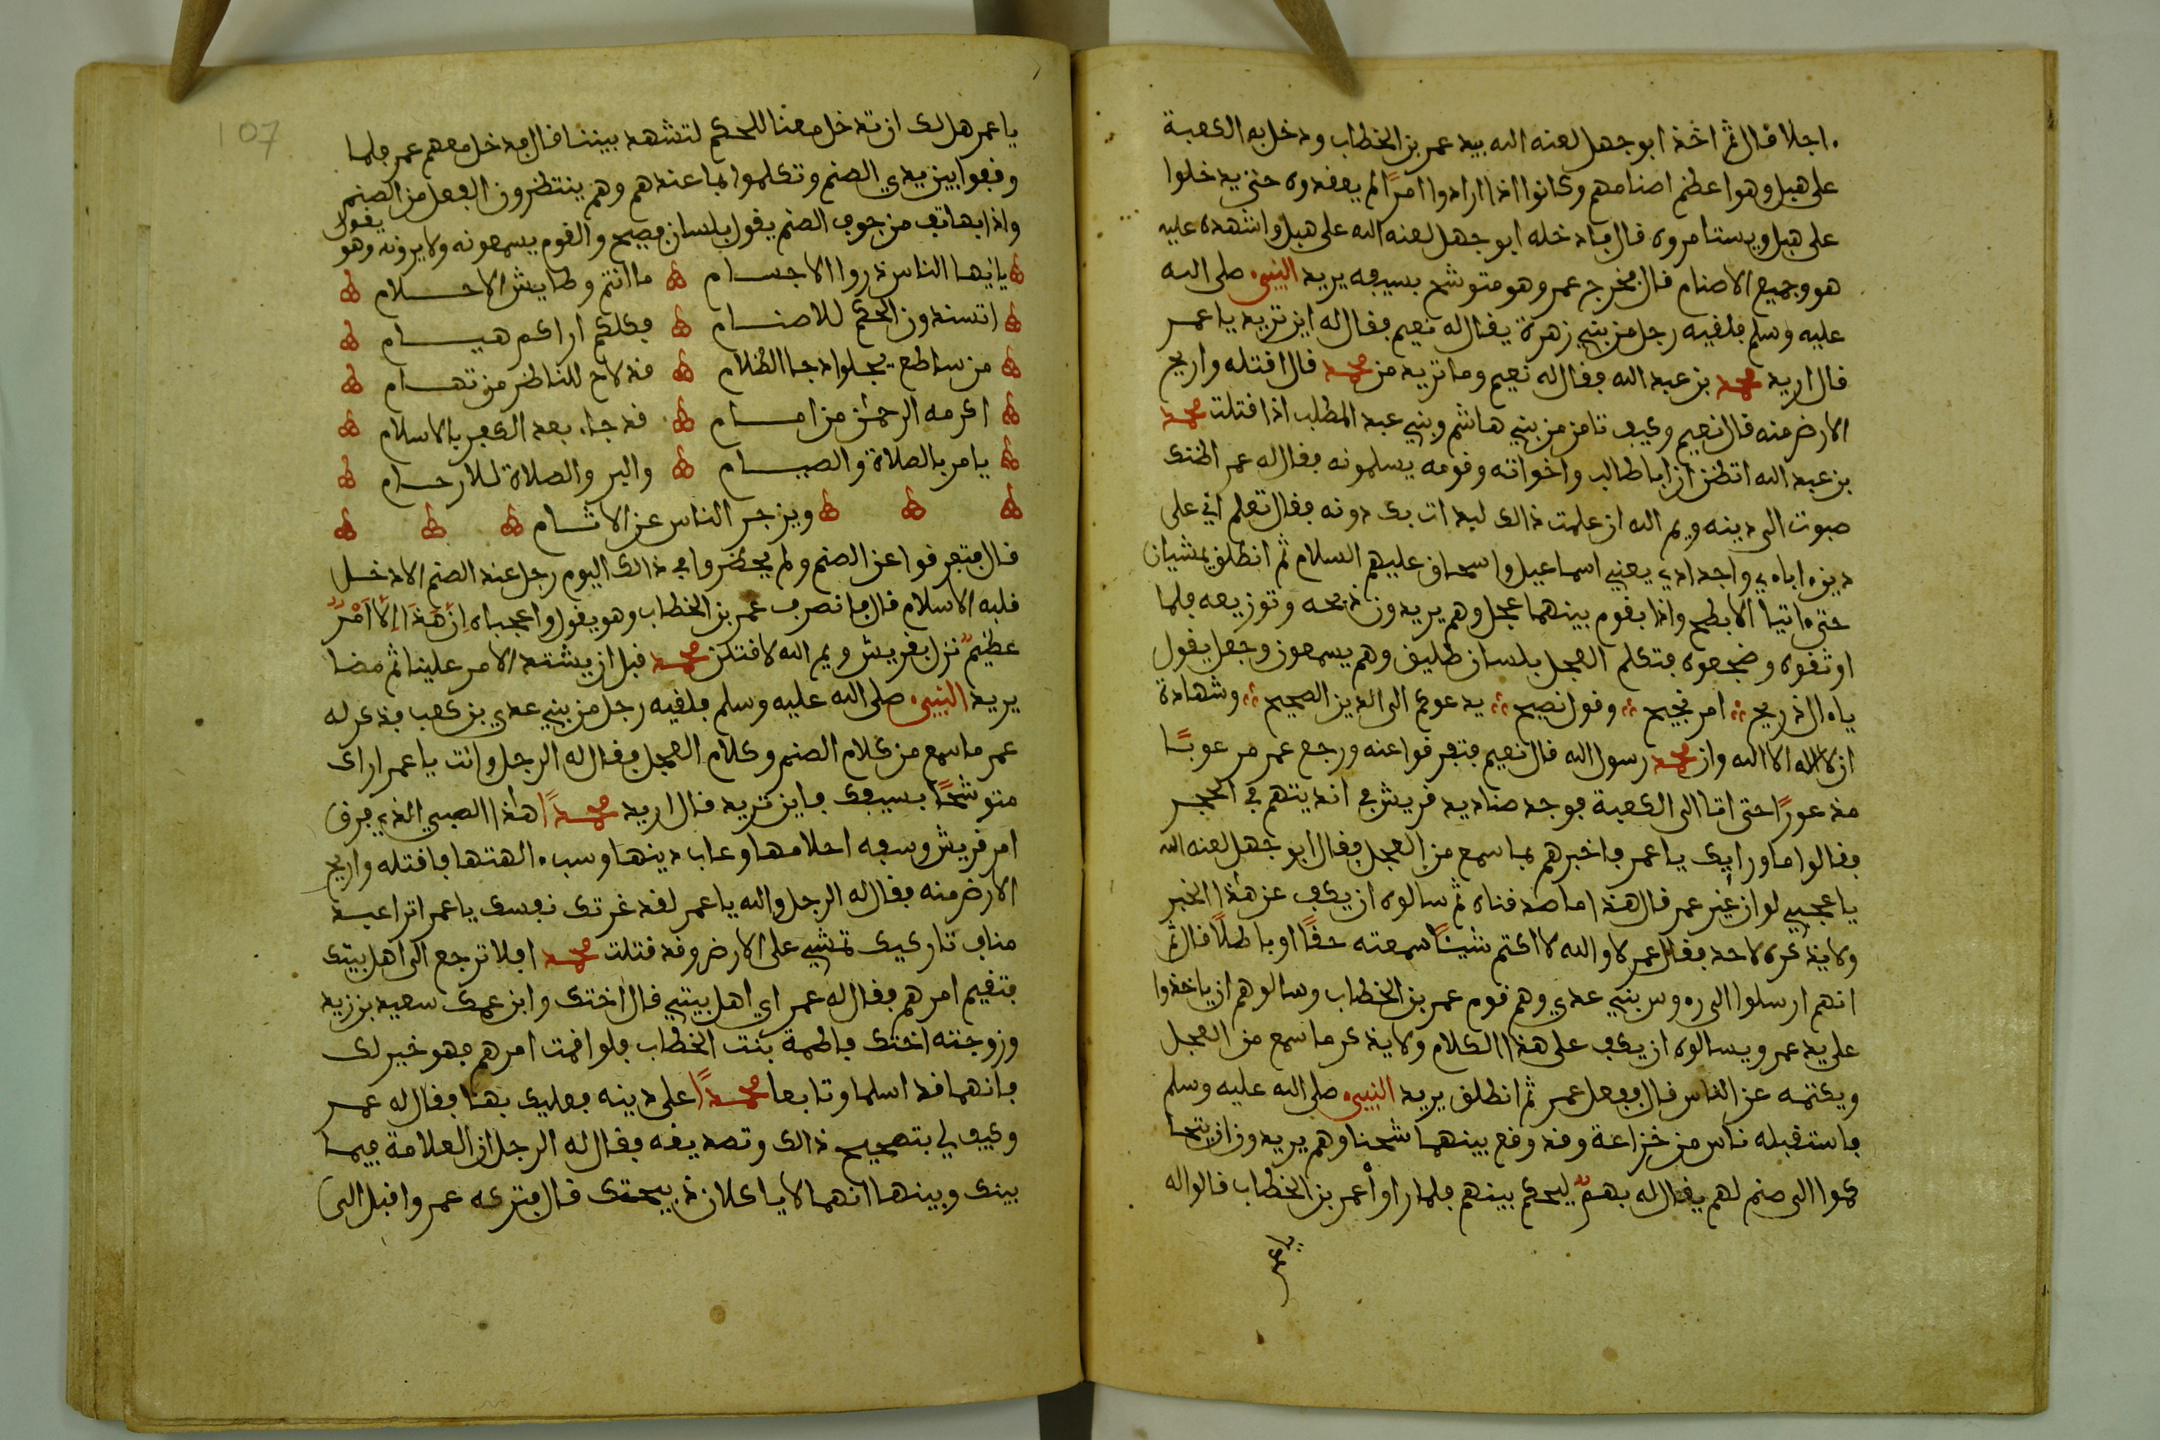 اجلا قال ثم اخذ ابو جهل لعنه الله بيد عمر بن الخطاب ودخل به الكعبة
على هبل وهو اعظم اصنامهم وكانوا اذا ارادوا امرًا لم يعقدوه حتى يدخلوا
على هبل ويستامروه قال فادخله ابو جهل لعنه الله على هبل واشهده عليه
هو وجميع الاصنام قال فخرج عمر وهو متوشح بسيفه يريد النبيء صلى الله
عليه وسلم فلقيه رجل من بني زهرة يقال له نعيم فقال له اين تريد يا عمر
قال اريد محمد بن عبد الله فقال له نعيم وما تريد من محمد قال اقتله واريح
الارض منه قال نعيم وكيف تامن من بني هاشم وبني عبد المطلب اذا قتلت محمد
بن عبد الله اتظن ان ابا طالب واخواته وقومه يسلمونه فقال له عمر اظنك
صبوت الى دينه ويم الله ان علمت ذالك ليدات بك دونه فقال تعلم اني على
دين اباءي واجدادي يعني اسماعيل واسحاق عليهم السلام ثم انطلق يمشيان
حتى اتيا الابطح واذا بقوم بينهما عجل وهم يريدون ذبحه وتوزيعه فلما
اوثقوه وضجعوه فتكلم العجل بلسان طليق وهم يسمعون وجعل يقول
يا ال ذريح امر نجيح وقول نصيح يدعوكم الى الدين الصحيح وشهادة
ان لا اله الا الله وان محمد رسول الله قال نعيم فتفرقوا عنه ورجع عمر مرعوبًا
مذعورًا حتى اتا الى الكعبة فوجد صناديد قريش في انديتهم في الحجر
فقالوا ما وراءك يا عمر فاخبرهم بما سمع من العجل فقال ابو جهل لعنه الله
يا عجبي لو ان غير عمر قال هذا ما صدقناه ثم سالوه ان يكف عن هذا الخبر
ولا يذكره لاحد فقال عمر لا والله لا اكتم شيئًا سمعته حقًا او باطلًا قال ثم
انهم ارسلوا الى رءوس بني عدي وهم قوم عمر بن الخطاب وسالوهم ان ياخذوا
على يد عمر ويسالوه ان يكف على هذا الكلام ولا يذكر ما سمع من العجل
ويكتمه عن الناس قال ففعل عمر ثم انطلق يريد النبيء صلى الله عليه وسلم
فاستقبله ناس من خزاعة وقد وقع بينهما شحنا وهم يريدون ان يتحا
كموا الى صنم لهم يقال له بهم ليحكم بينهم فلما راوا عمر بن الخطاب قالوا له
يا عمر
107
يا عمر هل لك ان تدخل معنا للحكم لتشهد بيننا قال فدخل معهم عمر فلما
وقفوا بين يدي الصنم وتكلموا بما عندهم وهم ينتظرون الفعل من الصنم
واذا بهاتف من جوف الصنم يقول بلسان فصيح والقوم يسمعونه ولا يرونه وهو يقول
يا ايها الناس ذروا الاجسام ما انتم وطايش الاحلام
اتسندون الحكم للاصنام فكلكم اراكم هيام
من ساطع يجلوا دجا الظلام قد لاح للناظر من تهام
اكرمه الرحمن من امام قد جاء بعد الكفر بالاسلام
يامر بالصلاة والصيام والبر والصلاة للارحام
ويزجر الناس عن الاثام
قال فتفرقوا عن الصنم ولم يحضروا في ذالك اليوم رجل عند الصنم الا دخل
قلبه الاسلام قال فانصرف عمر بن الخطاب وهو يقول واعجباه إن هَذَا إلا أَمْرٌ
عظيمٌ نزل بقريش ويم الله لاقتلن محمد قبل ان يشتد الامر علينا ثم مضا
يريد النبيء صلى الله عليه وسلم فلقيه رجل من بني عدي بن كعب فذكر له
عمر ما سمع من كلام الصنم وكلام العجل فقال له الرجل وانت يا عمر اراك
متوشحًا بسيفك فاين تريد قال اريد محمدًا هذا الصبي الذي فرق
امر قريش وسفه احلامها وعاب دينها وسب الهتها فاقتله واريح
الارض منه فقال له الرجل والله يا عمر لقد غرتك نفسك يا عمر اترا عبد
مناف تاركيك تمشي على الارض وقد قتلت محمد افلا ترجع الى اهل بيتك
فتقيم امرهم فقال له عمر اي اهل بيتي قال اختك وابن عمك سعيد بن زيد
وزوجته اختك فاطمة بنت الخطاب فلو اقمت امرهم فهو خير لك
فانهما قد اسلما وتابعا محمدًا على دينه فعليك بهما فقال له عمر
وكيف لي بتصحيح ذالك وتصديقه فقال له الرجل ان العلامة فيما
بينك وبينها انهما لا ياكلان ذبيحتك قال فتركه عمر واقبل الى